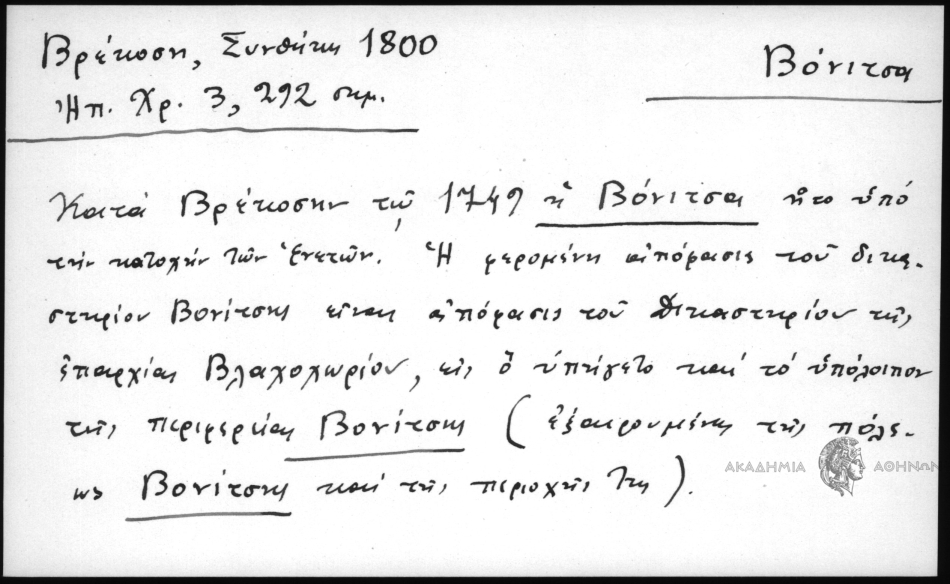 Βρέκοση, Συνθήκη 1800
Βόνιτσα
Ἠπ. Χρ. 3, 292 σημ.
Κατά Βρέκοσην τῷ 1749 ἡ Βόνιτσα ἦτο ὑπό
τήν κατοχήν τῶν Ἐνετῶν. Ἡ φερομένη ἀπόφασις τοῦ δικα-
στηρίου Βονίτσης εἶναι ἀπόφασις τοῦ Δικαστηρίου τῆς
ἐπαρχίας Βλαχοχωρίου, εἰς ὅ ὑπήγετο καί τό ὑπόλοιπον
τῆς περιφερείας Βονίτσης (ἐξαιρουμένης τῆς πόλε-
ως Βονίτσης καί τῆς περιοχῆς της).
ΑΚΑΔΗΜΙΑ ΑΘΗΝΩΝ